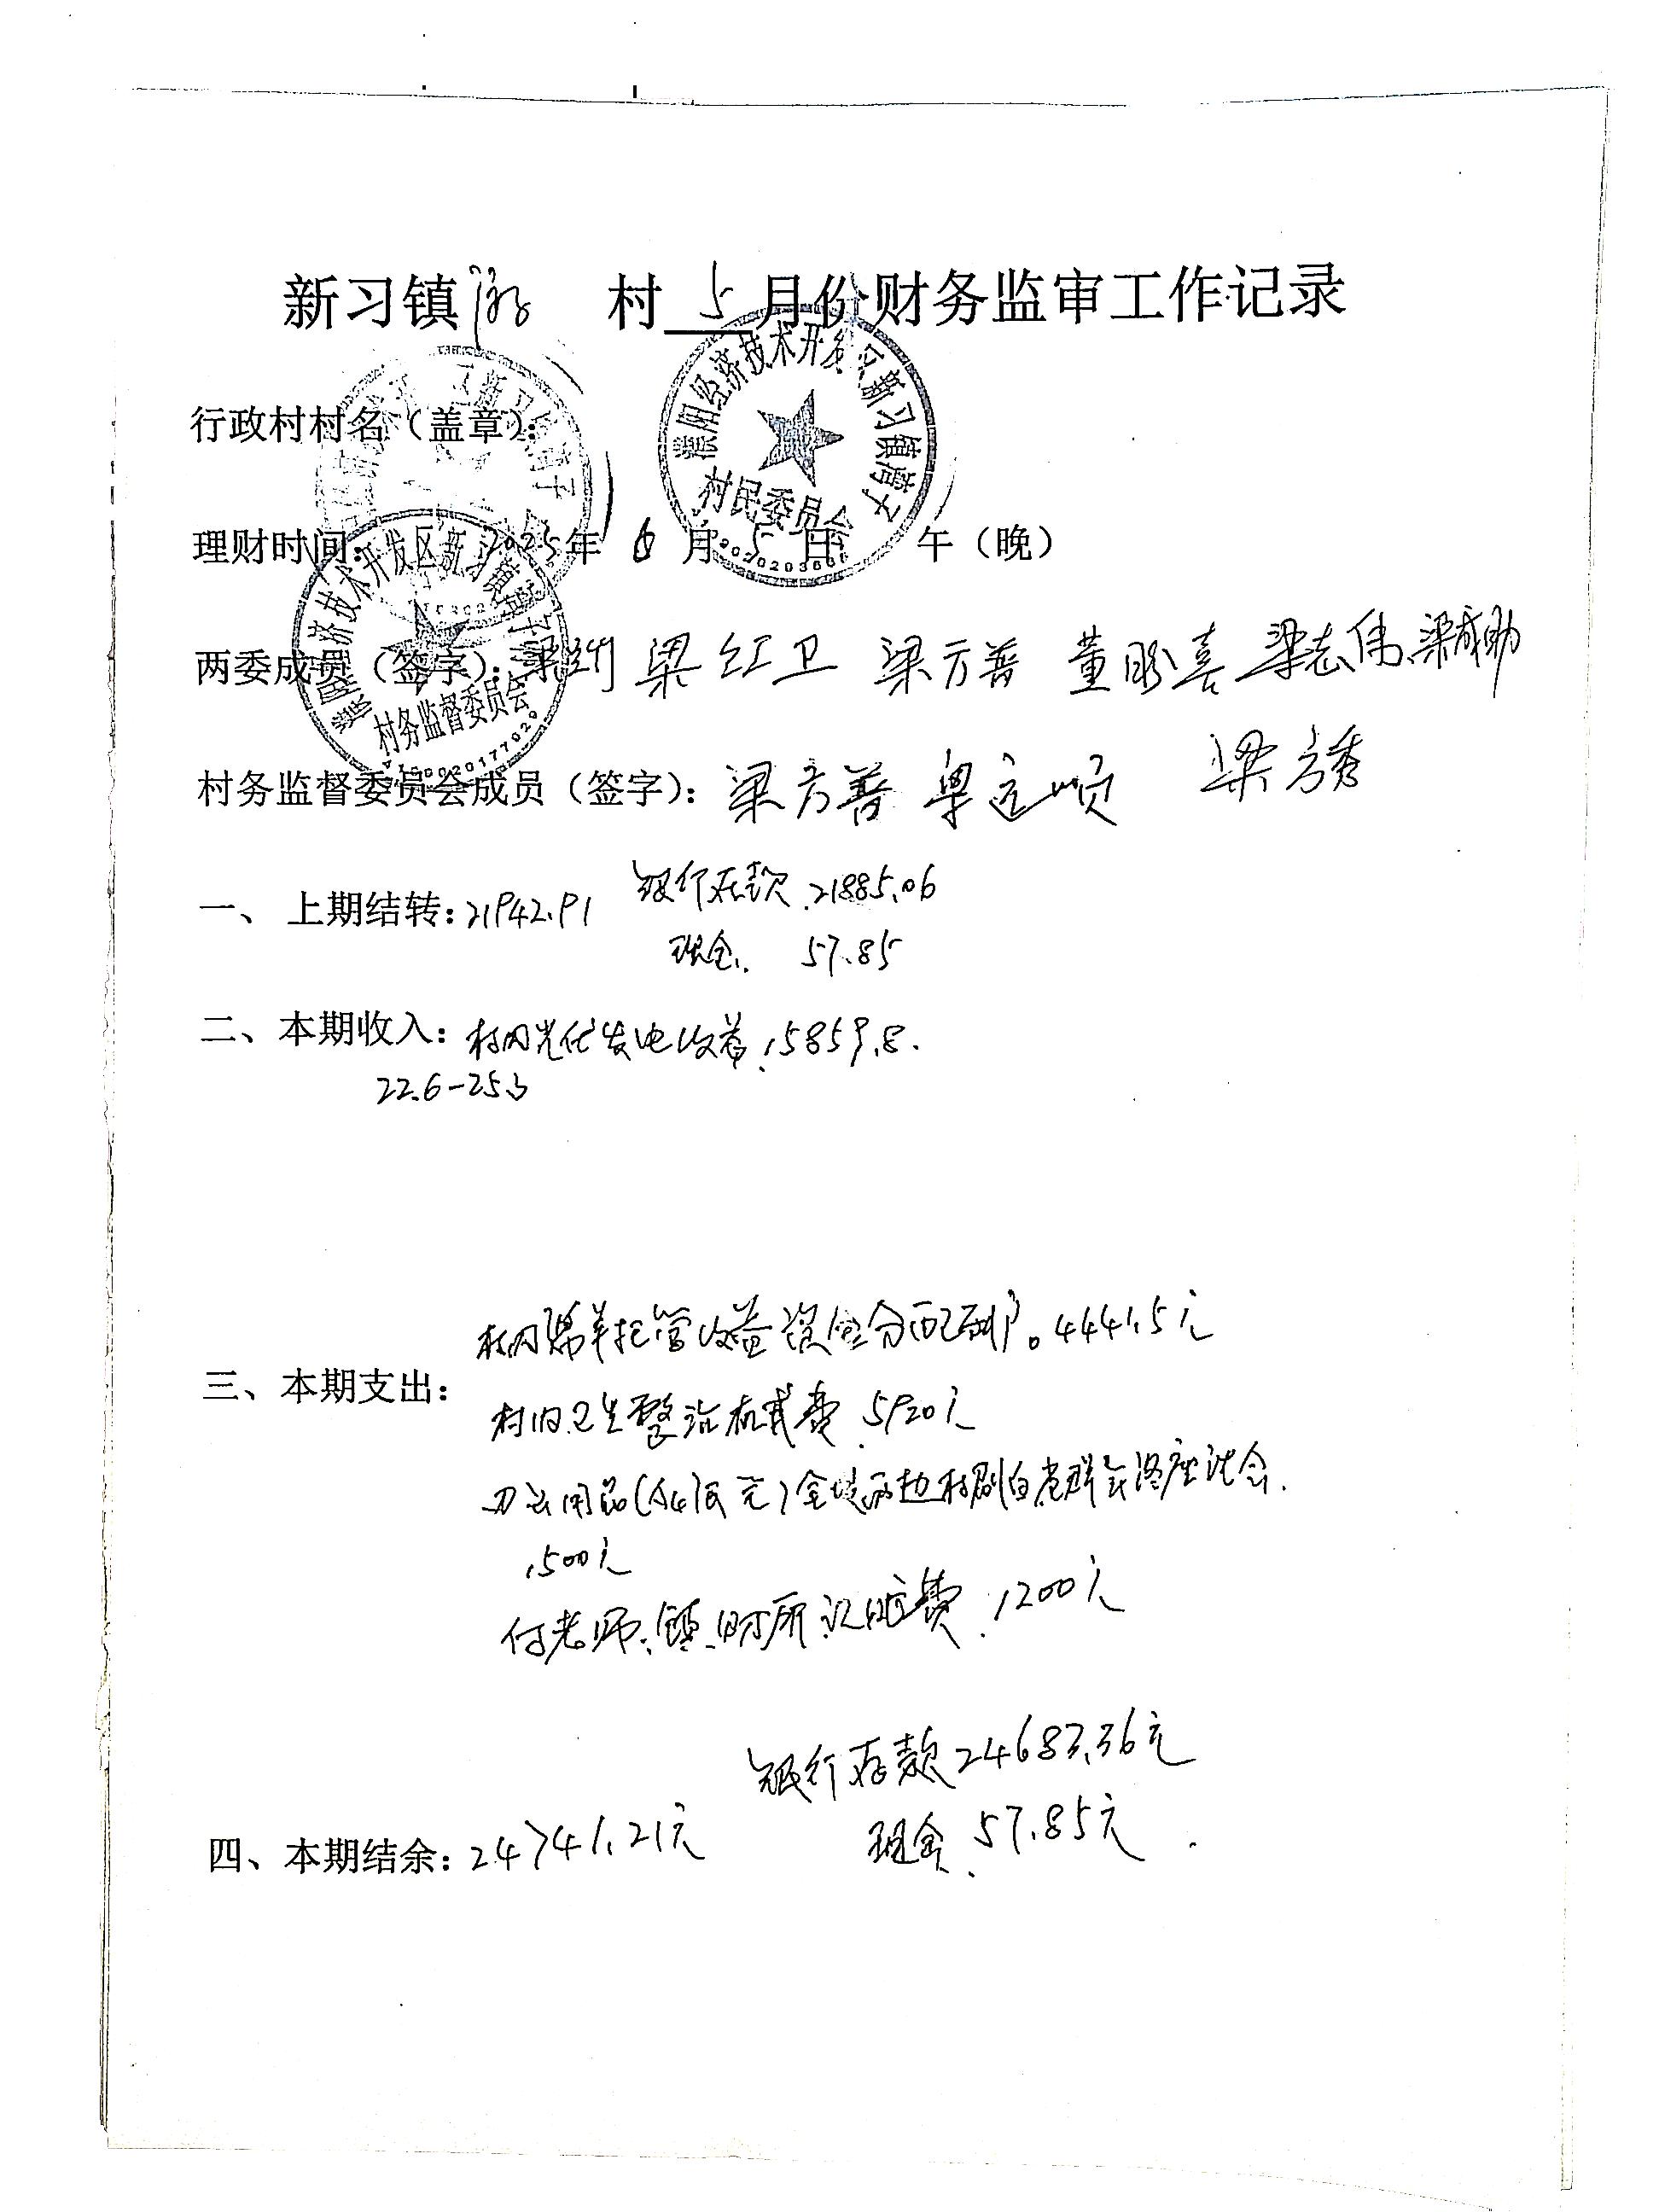 新习镇 村 5 月份财务监审工作记录
行政村村名（盖章）：
濮阳经济技术开发区新习镇 子
村民委员会
理财时间： 2025年 6 月 5 日 午（晚）
两委成员（签字）： 梁红卫 梁方普 董 喜 梁志伟 梁成勋
村务监督委员会
4109020177020
村务监督委员会成员（签字）：梁方普 梁 顺 梁方秀
一、 上期结转：21942.91 银行存款 21885.06
现金. 57.85
二、本期收入：村内光伏发电收益 15859.8.
22.6-25.3
村内 羊托管收益资金分配到户。4441.5元
三、本期支出：
村内卫生整治机械费 5920元
办公用品(A4 ) 座谈会.
1500元
付老师、镇财所记账费 1200元
银行存款24683.36元
四、本期结余：24741.21元 现金 57.85元